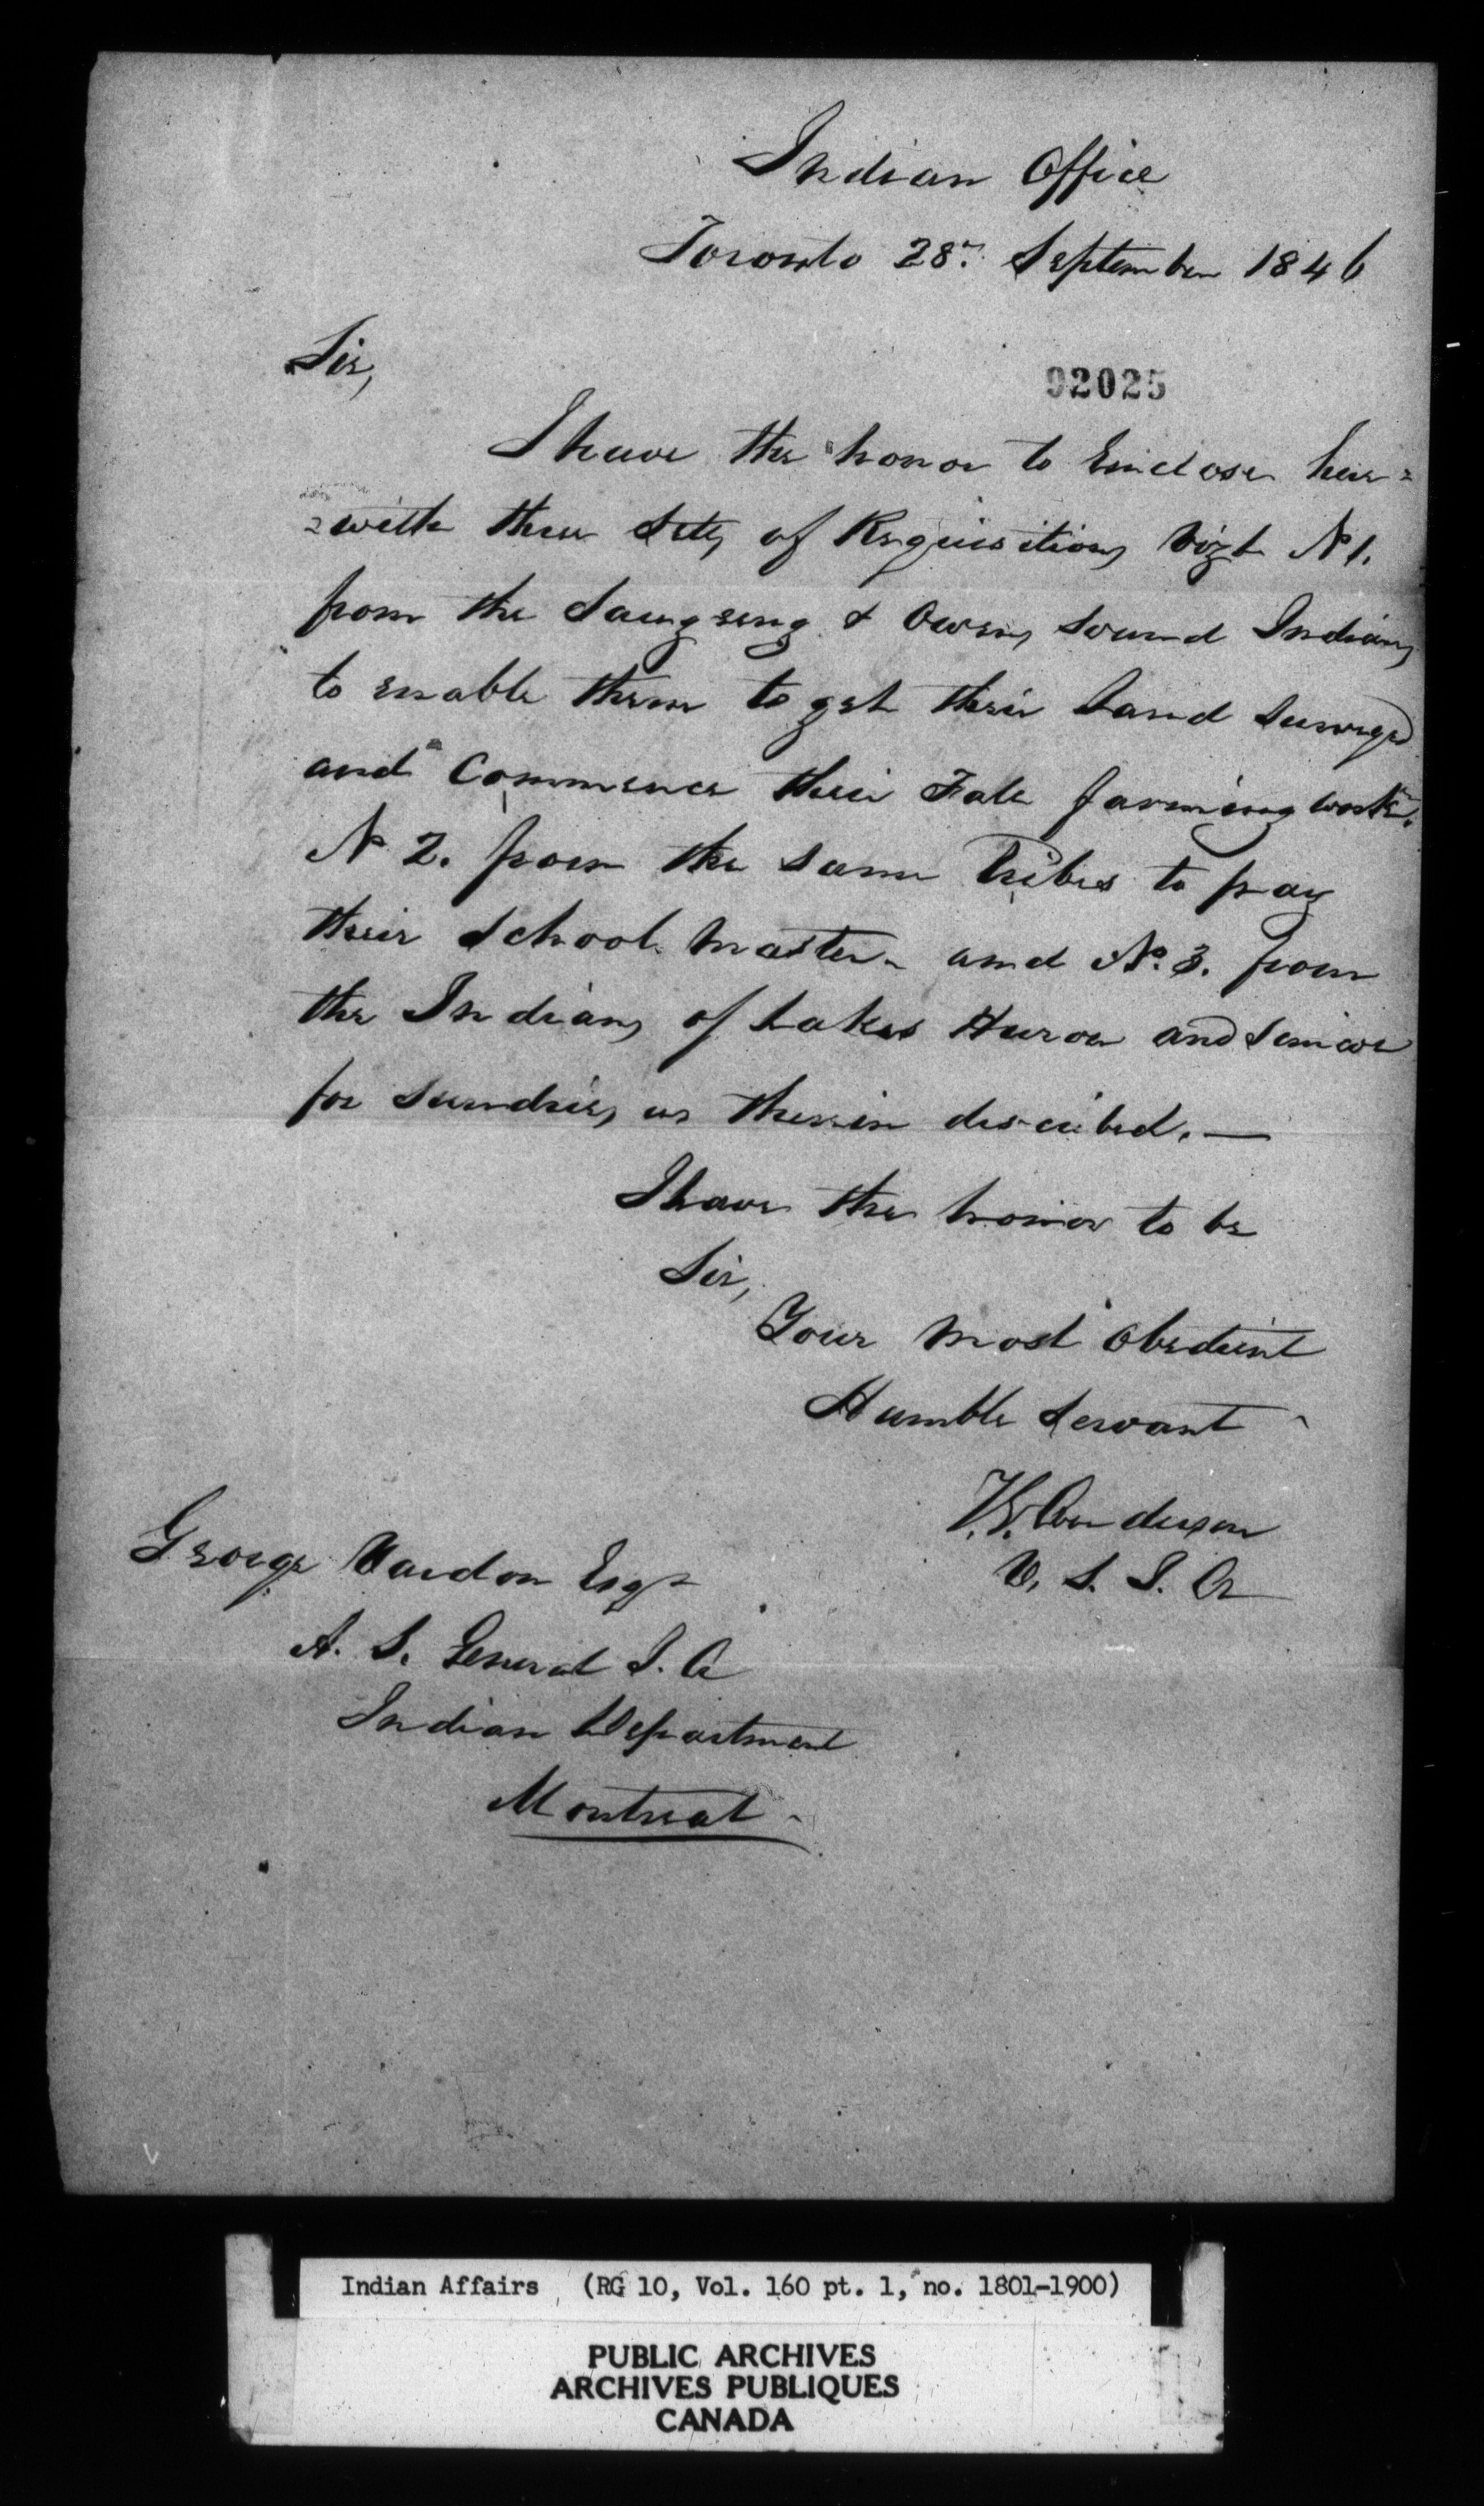 Indian Office
Toronto 28th September 1846
Sir,
92025
I have the honor to Enclose here=
=with three Sets of Requisitions Vizt No 1.
from the Saugeeng & Owens Sound Indians
to enable them to get their Land Surveyed
and Commence their Fall farming work.
No 2. from the same Tribes to pay
their School Master - and No. 3. from
the Indians of Lakes Huron and Simcoe
for sundries as therein described. —
I have the honor to be
Sir,
Your most obedient
Humble Servant
T. G. Anderson
V. S. I. A
George Vardon Esqr
A. S. General I. A
Indian Department
Montreal -
Indian Affairs (RG 10, Vol. 160 pt. 1, no. 1801-1900)
PUBLIC ARCHIVES
ARCHIVES PUBLIQUES
CANADA